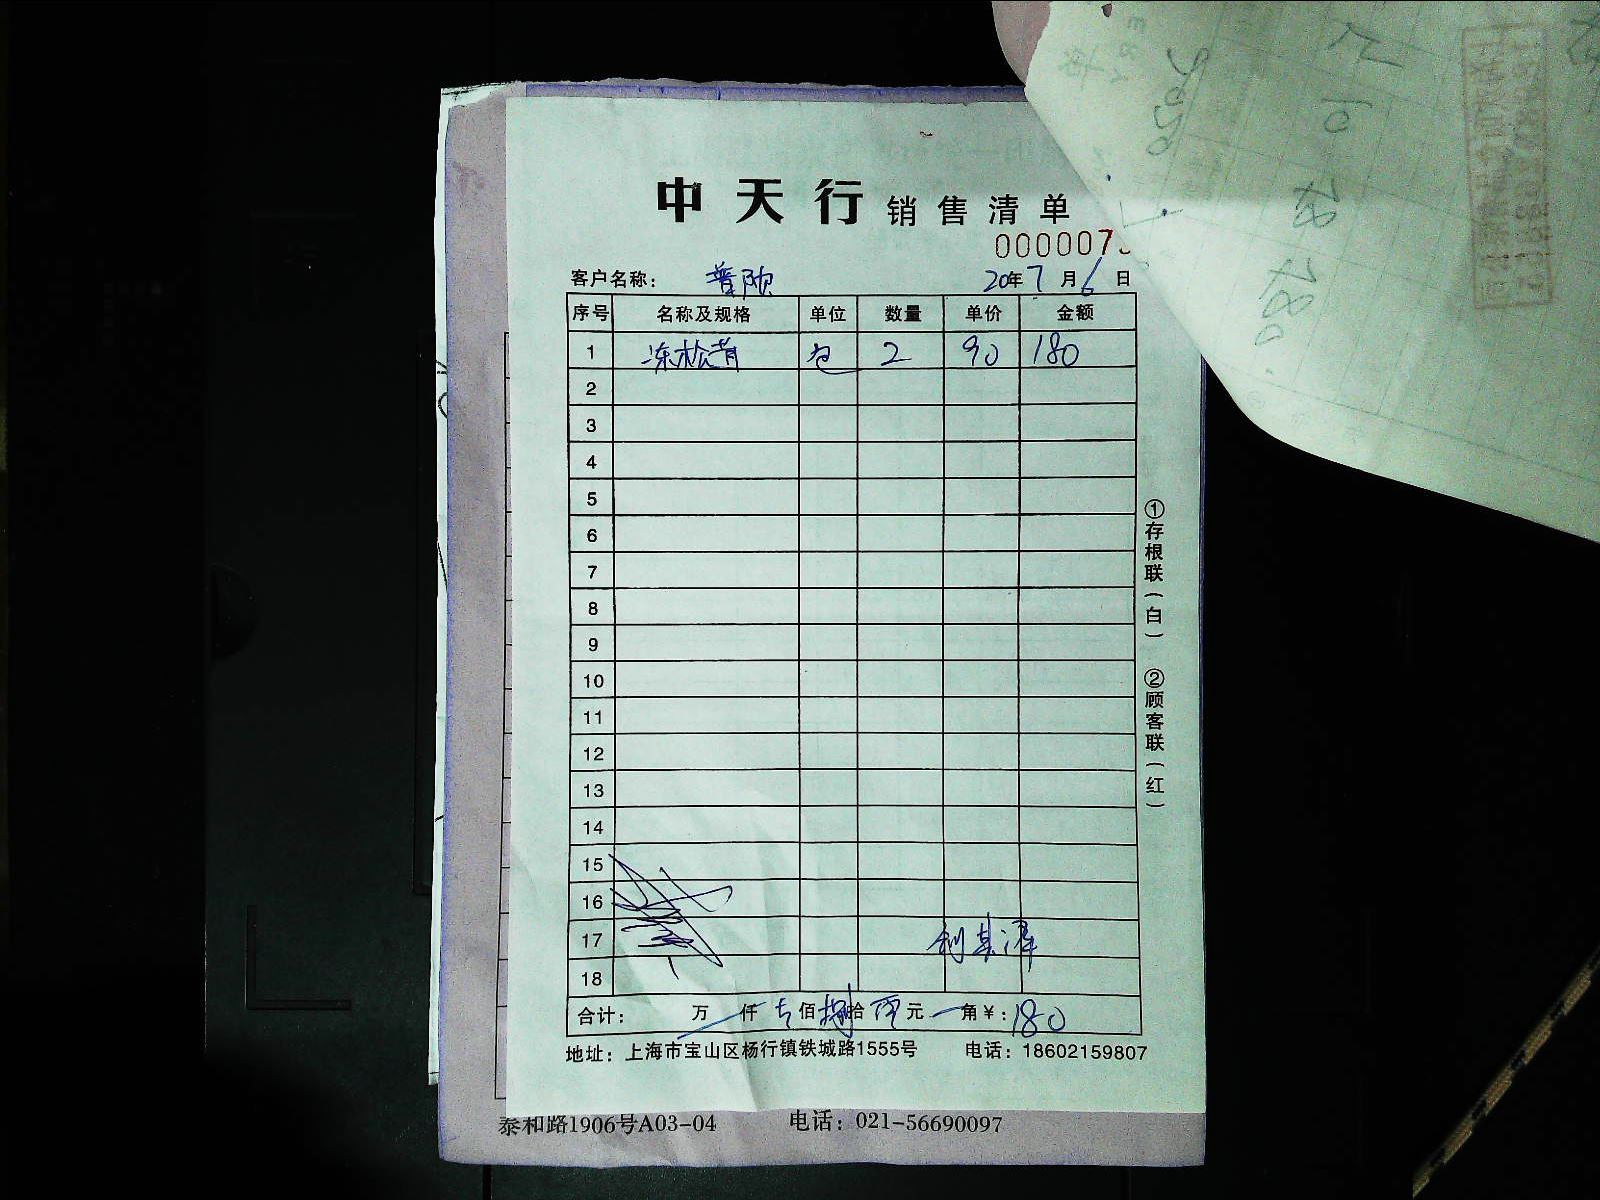 中天行 销售清单
000007
客户名称： 普欣 20年7月6日
序号 名称及规格 单位 数量 单价 金额
1 冻松茸 包 2 90 180
2
3
4
5
6
7
8
9
10
11
12
13
14
15
16
17
18
合计： 万 仟 佰 捌拾 元 角 ￥：180
地址：上海市宝山区杨行镇铁城路1555号 电话：18602159807
①存根联（白） ②顾客联（红）
泰和路1906号A03-04 电话：021-56690097
5050
10
78
780